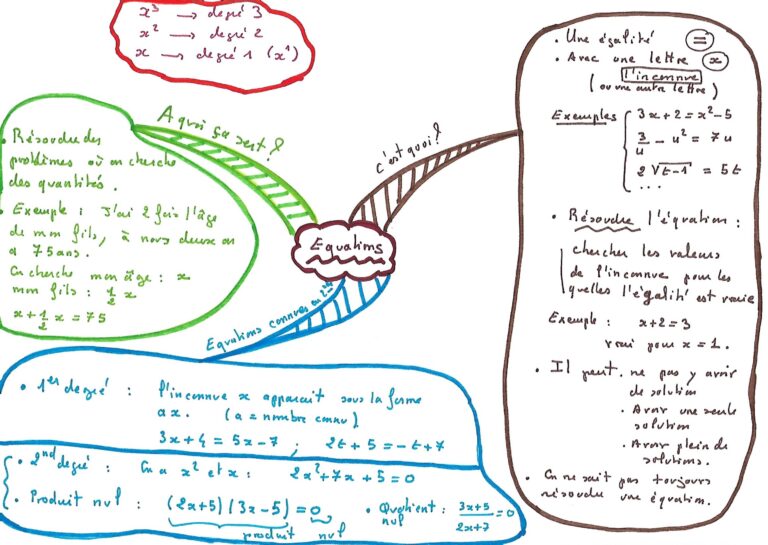 x³ → degré 3
x² → degré 2
x → degré 1 (x¹)
A quoi ça sert?
• Résoudre des
problèmes où on cherche
des quantités.
• Exemple : J'ai 2 fois l'âge
de mon fils, à nous deux on
a 75 ans.
On cherche mon âge : x
mon fils : ½ x
x + ½ x = 75
c'est quoi?
• Une égalité =
• Avec une lettre x
l'inconnue
(ou une autre lettre)
Exemples
3x + 2 = x² - 5
3/u - u² = 7u
2 √t-1 = 5t
...
• Résoudre l'équation :
chercher les valeurs
de l'inconnue pour les
quelles l'égalité est vraie
Exemple : x + 2 = 3
vrai pour x = 1.
• Il peut . ne pas y avoir
de solution
. Avoir une seule
solution
. Avoir plein de
solutions.
• On ne sait pas toujours
résoudre une équation.
Equations
Equations connues en 2nde
• 1er degré : l'inconnue x apparait sous la forme
ax. (a = nombre connu)
3x + 4 = 5x - 7 ; 2t + 5 = -t + 7
• 2nd degré : On a x² et x : 2x² + 7x + 5 = 0
• Produit nul : (2x+5)(3x-5) = 0
produit nul
• Quotient : 3x+5/2x+7 = 0
nul